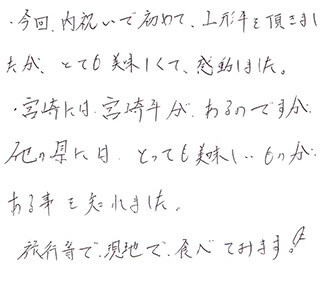 ・今回、内祝いで初めて、山形牛を頂きまし
たが、とても美味しくて、感動しました。
・宮崎には宮崎牛が、あるのですが、
他の県には、とっても美味しいものが
ある事を知れました。
旅行等で、現地で、食べてみます!